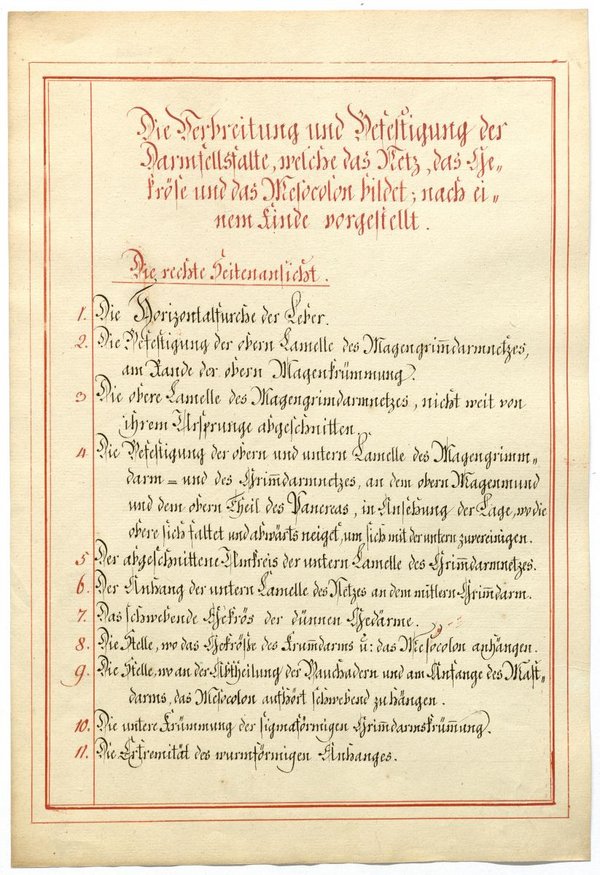 Die Verbreitung und Befestigung der
Darmfellfalte, welche das Netz, das Ge„
kröse und das Mesocolon bildet; nach ei„
nem Kinde vorgestellt.
Die rechte Seitenansicht.
1. Die Horizontalfurche der Leber.
2. Die Befestigung der obern Lamelle des Magengrim̄darmnetzes,
am Rande der obern Magenkrümmung.
3 Die obere Lamelle des Magengrimdarmnetzes, nicht weit von
ihrem Ursprunge abgeschnitten.
4 Die Befestigung der obern und untern Lamelle des Magengrimm„
darm = und des Grim̄darmnetzes, an dem obern Magenmund
und dem obern Theil des Pancreas, in Ansehung der Lage, wo die
obere sich faltet und abwärts neiget, um sich mit der untern zu vereinigen.
5 Der abgeschnittene Umkreis der untern Lamelle des Grim̄darmnetzes.
6. Der Anhang der untern Lamelle des Netzes an dem mittlern Grim̄darm.
7. Das schwebende Gekrös der dünnen Gedärme.
8. Die Stelle, wo das Gekröße des Krum̄darms u: das Mesocolon anhängen.
9. Die Stelle, wo an der Abtheilung der Bauchadern und am Anfange des Mast„
darms, das Mesocolon aufhört schwebend zu hängen.
10. Die untere Krümmung der sigmaförmigen Grim̄darmskrüm̄ung.
11. Die Extremität des wurmförmigen Anhanges.